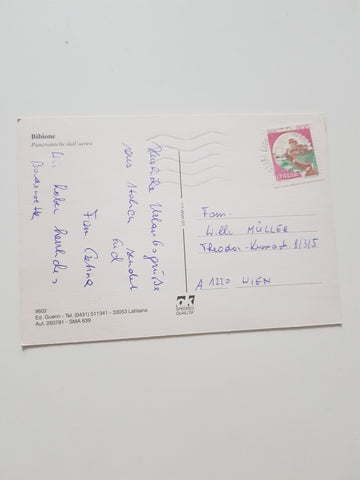 Bibione
Panoramiche dall'aereo
Herzliche Urlaubsgrüße
aus Italien sendet
Euch
Fam.
Wir haben herrliches
Badewetter
ITALIA
Fam.
Willi MÜLLER
8/3/5
A 1220 WIEN
9602
Ed. Guerin - Tel. (0431) 511341 - 33053 Latisana
Aut. 260791 - SMA 639